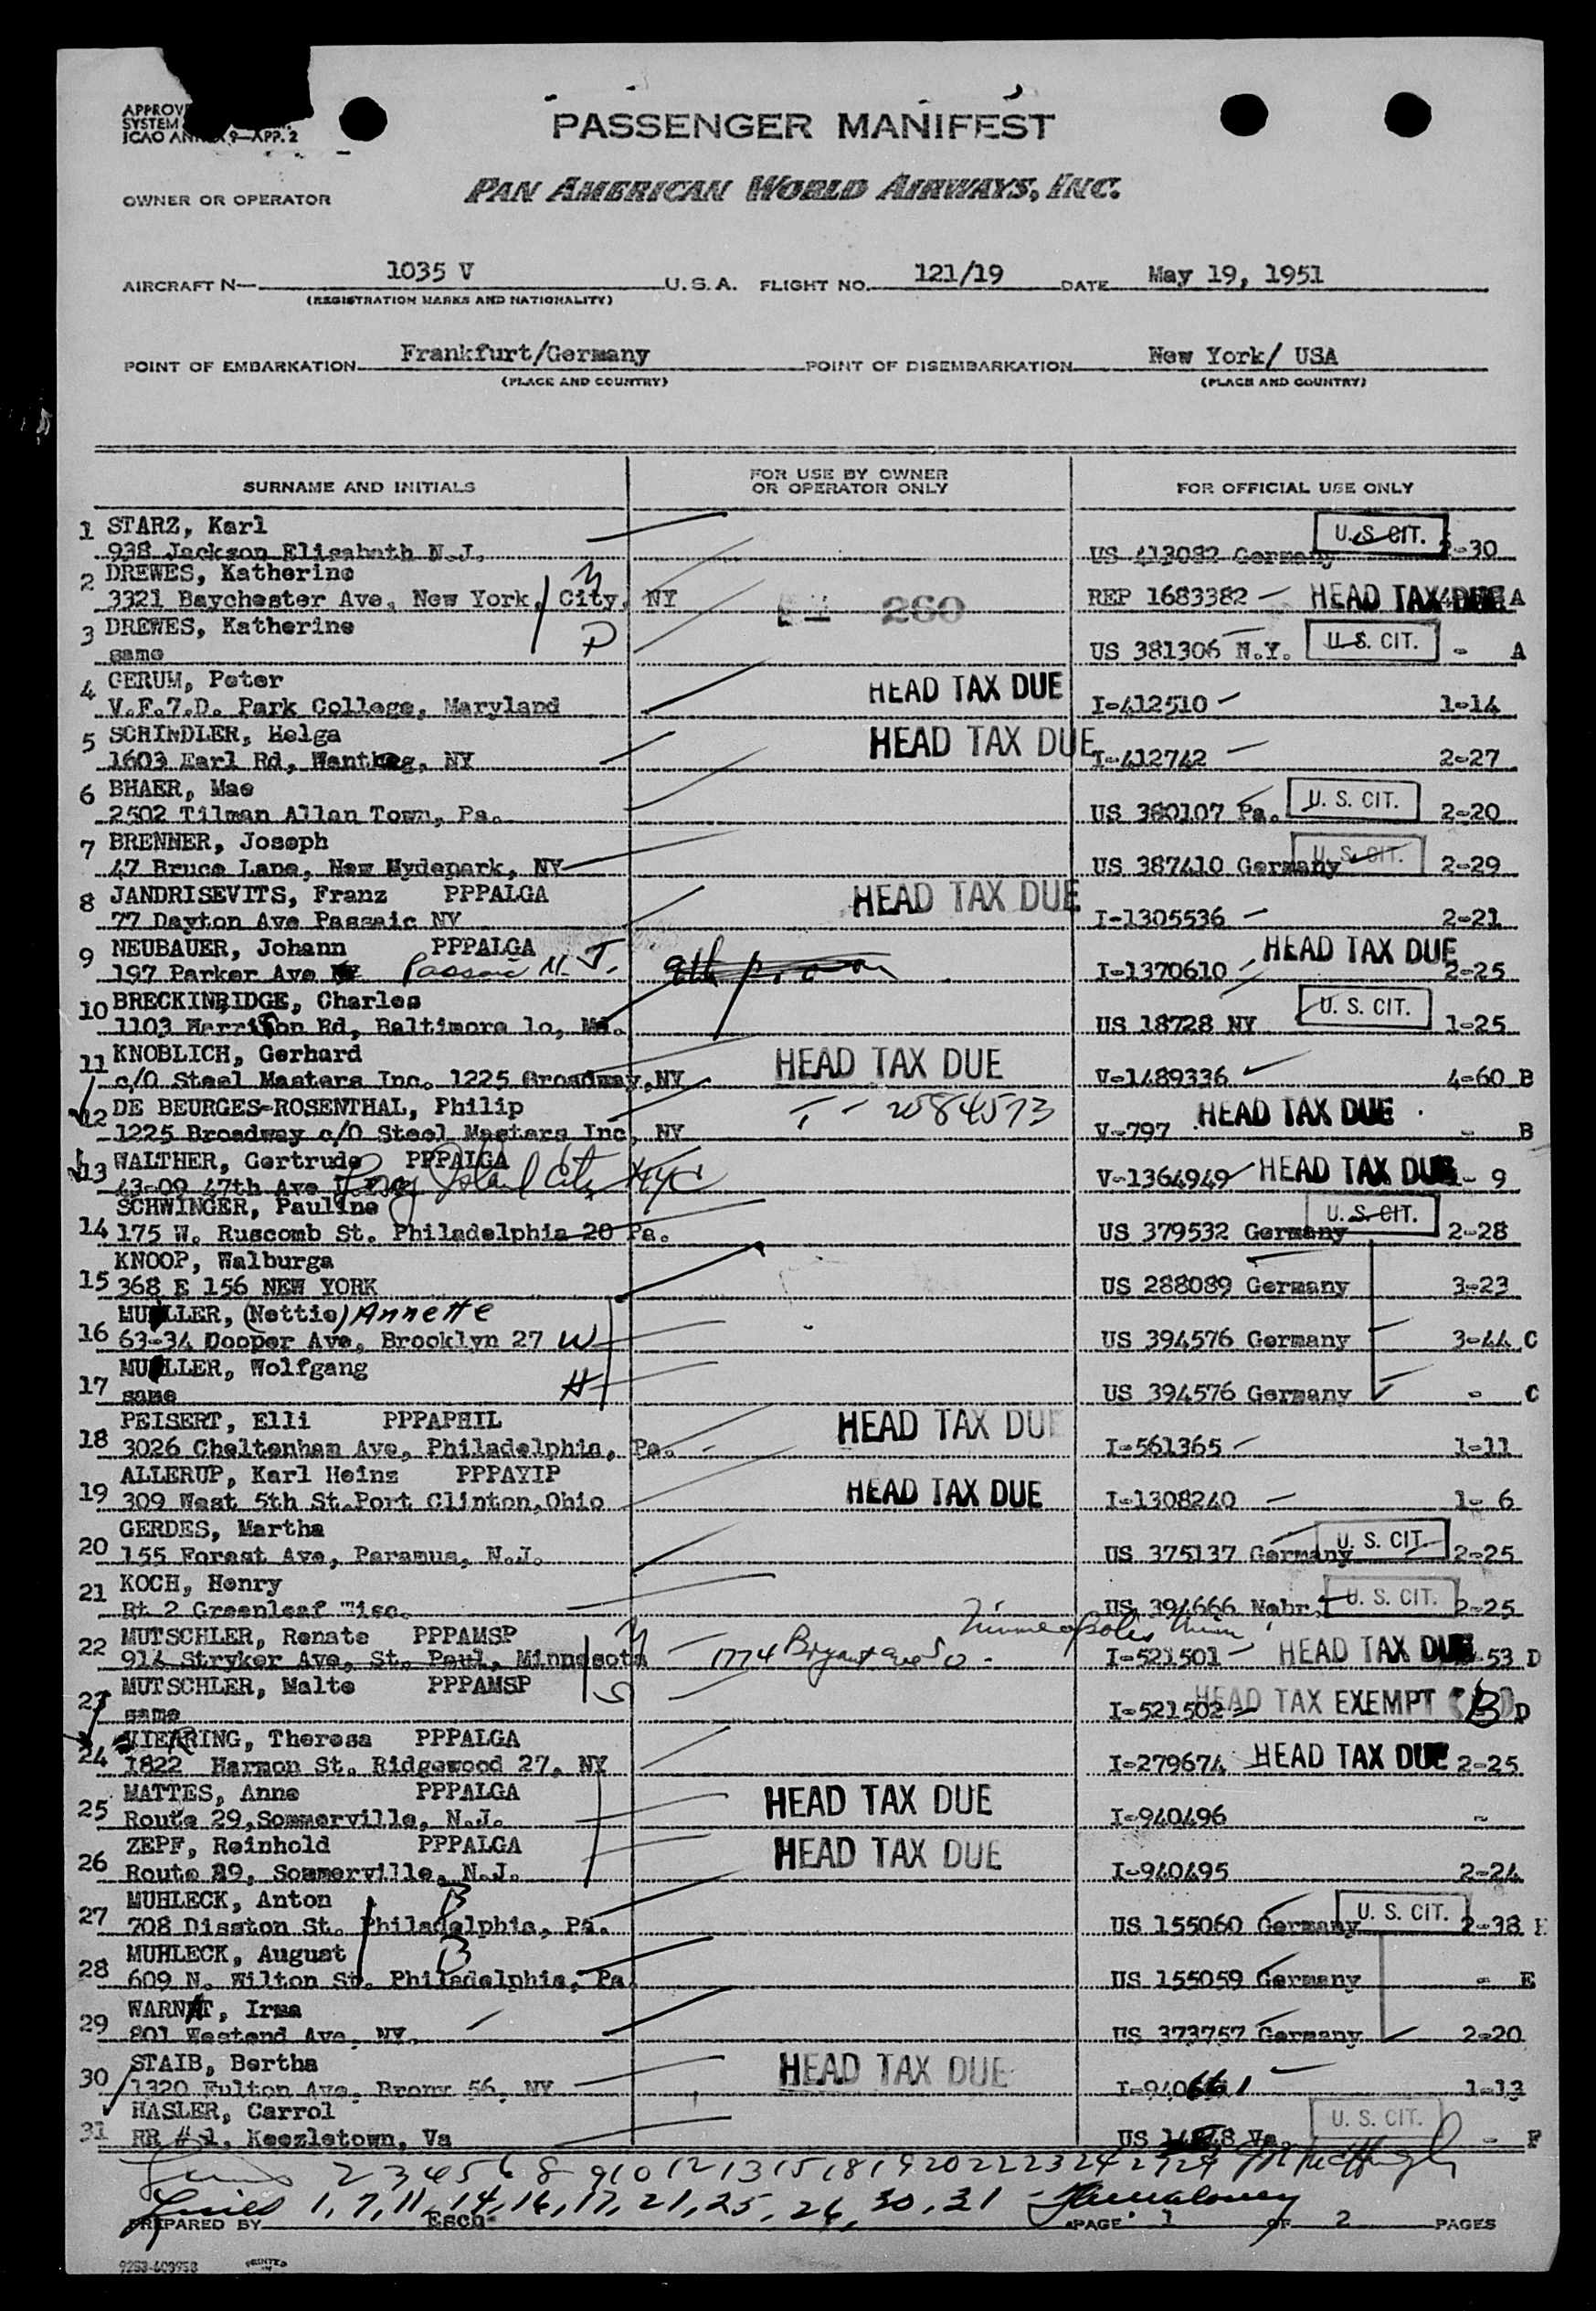 APPROV
SYSTEM
ICAO ANNEX 9—APP. 2
PASSENGER MANIFEST
OWNER OR OPERATOR PAN AMERICAN WORLD AIRWAYS, INC.
AIRCRAFT N— 1035 V U.S.A. FLIGHT NO. 121/19 DATE May 19, 1951
(REGISTRATION MARKS AND NATIONALITY)
POINT OF EMBARKATION Frankfurt/Germany POINT OF DISEMBARKATION New York/ USA
(PLACE AND COUNTRY) (PLACE AND COUNTRY)
SURNAME AND INITIALS FOR USE BY OWNER OR OPERATOR ONLY FOR OFFICIAL USE ONLY
1 STARZ, Karl U. S. CIT.
938 Jackson Elisabeth N.J. US 413082 Germany 2-30
2 DREWES, Katherine
3321 Baychester Ave, New York, City, NY 260 REP 1683382 HEAD TAX DUE A
3 DREWES, Katherine
same US 381306 N.Y. U. S. CIT. - A
4 GERUM, Peter HEAD TAX DUE
V.F.7.D. Park College, Maryland I-412510 1-14
5 SCHINDLER, Helga HEAD TAX DUE
1603 Earl Rd, Wanthag, NY I-412742 2-27
6 BHAER, Mae
2502 Tilman Allan Town, Pa. US 380107 Pa. U. S. CIT. 2-20
7 BRENNER, Joseph
47 Bruce Lane, New Hydepark, NY US 387410 Germany U. S. CIT. 2-29
8 JANDRISEVITS, Franz PPPALGA HEAD TAX DUE
77 Dayton Ave Passaic NY I-1305536 2-21
9 NEUBAUER, Johann PPPALGA HEAD TAX DUE
197 Parker Ave Passaic N.J. I-1370610 2-25
10 BRECKINRIDGE, Charles U. S. CIT.
1103 Harrison Rd, Baltimore 10, Md. US 18728 NY 1-25
11 KNOBLICH, Gerhard HEAD TAX DUE
c/O Steel Masters Inc. 1225 Broadway, NY V-1489336 4-60 B
12 DE BEURGES-ROSENTHAL, Philip T-2584573 HEAD TAX DUE
1225 Broadway c/O Steel Masters Inc, NY V-797 - B
13 WALTHER, Gertrude PPPALGA
43-09 47th Ave Long Island City NYC V-1364949 HEAD TAX DUE 1- 9
SCHWINGER, Pauline U. S. CIT.
14 175 W. Ruscomb St. Philadelphia 20 Pa. US 379532 Germany 2-28
KNOOP, Walburga
15 368 E 156 NEW YORK US 288089 Germany 3-23
MULLER, (Nettie) Annette
16 63-34 Dooper Ave, Brooklyn 27 W US 394576 Germany 3-44 C
MULLER, Wolfgang
17 same H US 394576 Germany - C
PEISERT, Elli PPPAPHIL HEAD TAX DUE
18 3026 Cheltenham Ave, Philadelphia, Pa. I-561365 1-11
ALLERUP, Karl Heinz PPPAYIP
19 309 West 5th St.Port Clinton,Ohio HEAD TAX DUE I-1308240 1- 6
GERDES, Martha
20 155 Forest Ave, Paramus, N.J. US 375137 Germany U. S. CIT. 2-25
21 KOCH, Henry
Rt 2 Greenleaf Wisc. US 394666 Nebr. U. S. CIT. 2-25
22 MUTSCHLER, Renate PPPAMSP Minneapolis Minn
914 Stryker Ave, St. Paul, Minnesota 1774 Bryant Ave So - I-521501 HEAD TAX DUE 53 D
23 MUTSCHLER, Malte PPPAMSP
same S I-521502 HEAD TAX EXEMPT (B) D
VIERRING, Theresa PPPALGA
24 1822 Harmon St. Ridgewood 27, NY I-279674 HEAD TAX DUE 2-25
MATTES, Anne PPPALGA
25 Route 29,Sommerville, N.J. HEAD TAX DUE I-940496 -
ZEPF, Reinhold PPPALGA
26 Route 29, Sommerville, N.J. HEAD TAX DUE I-940495 2-24
MUHLECK, Anton B
27 708 Disston St. Philadelphia, Pa. US 155060 Germany U. S. CIT. 2-38 E
MUHLECK, August B
28 609 N. Wilton St. Philadelphia, Pa. US 155059 Germany - E
WARNAT, Irma
29 801 Westend Ave, NY. US 373757 Germany 2-20
STAIB, Bertha
30 1320 Fulton Ave, Bronx 56, NY HEAD TAX DUE I-940661 1-13
HASLER, Carrol U. S. CIT.
31 RR # 1, Keezletown, Va Va - F
2 3 4 5 6 8 9 10 12 13 15 18 19 20 22 23 24 27 29
Lines 1, 7, 11, 14, 16, 17, 21, 25, 26, 30, 31
PREPARED BY Esch PAGE 1 OF 2 PAGES
9253-609958 PRINTED